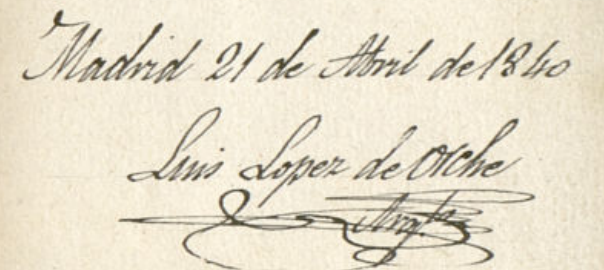 Madrid 21 de Abril de 1840
Luis Lopez de Orche
Arq.to